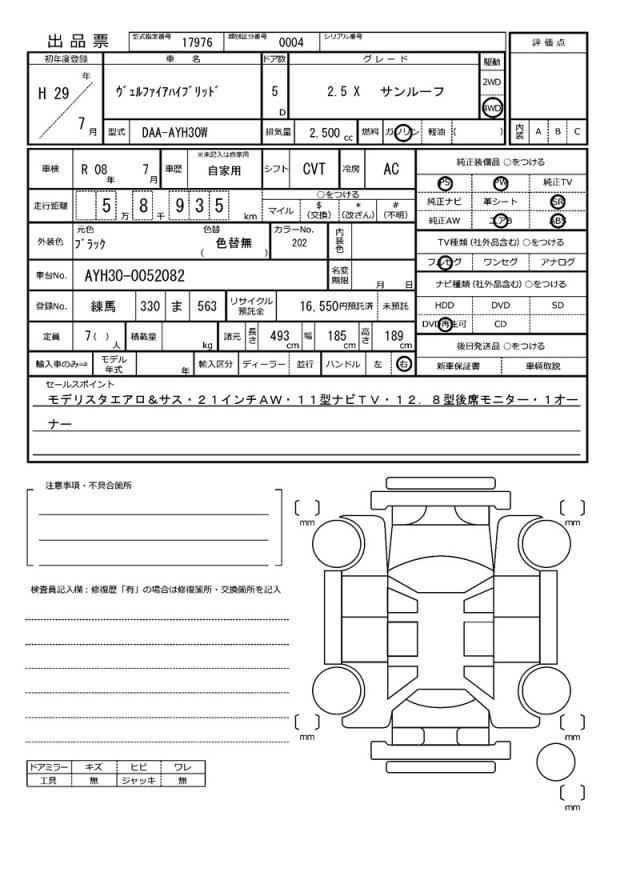 出品票 型式指定番号 17976 類別区分番号 0004 シリアル番号
評価点
初年度登録 車 名 ドア数 グレード 駆動
H 29 年 7 月 ヴェルファイアハイブリッド 5 D 2.5 X サンルーフ 2WD 4WD
型式 DAA-AYH30W 排気量 2,500 cc 燃料 ガソリン 軽油 ( ) 内装 A B C
車検 R 08 年 7 月 車歴 ※未記入は自家用 自家用 シフト CVT 冷房 AC
純正装備品 ○をつける
PS PW 純正TV
純正ナビ 革シート SR
純正AW エアB ABS
走行距離 5 万 8 千 9 3 5 km
○をつける
マイル $ (交換) * (改ざん) # (不明)
外装色 元色 ブラック 色替 色替無 ( ) カラーNo. 202 内装色
TV種類 (社外品含む) ○をつける
フルセグ ワンセグ アナログ
車台No. AYH30-0052082 名変期限 月 日
ナビ種類 (社外品含む) ○をつける
HDD DVD SD
DVD再生可 CD
登録No. 練馬 330 ま 563 リサイクル預託金 16,550円預託済 未預託
定員 7( ) 人 積載量 kg 諸元 長さ 493 cm 幅 185 cm 高さ 189 cm
後日発送品 ○をつける
新車保証書 車輌取説
輸入車のみ⇒ モデル年式 年 輸入区分 ディーラー 並行 ハンドル 左 右
セールスポイント
モデリスタエアロ＆サス・２１インチＡＷ・１１型ナビＴＶ・１２．８型後席モニター・１オー
ナー
注意事項・不具合箇所
検査員記入欄：修復歴「有」の場合は修復箇所・交換箇所を記入
mm
mm
mm
mm
mm
ドアミラー キズ ヒビ ワレ
工具 無 ジャッキ 無